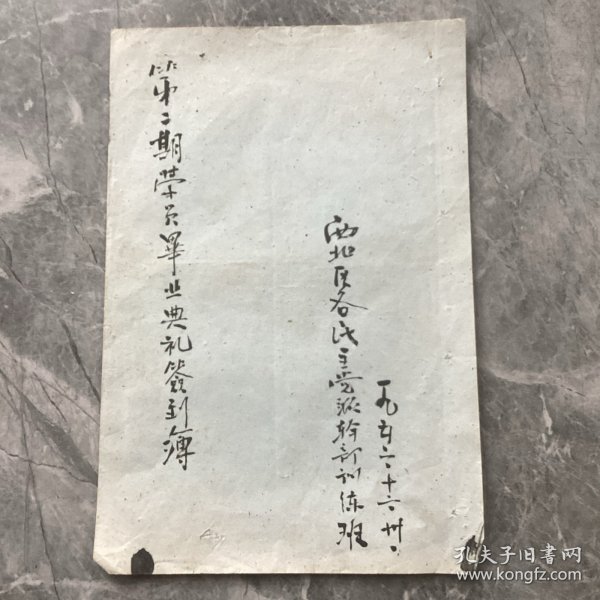 一九五二、十二、卅、
西北区各民主党派幹部训练班
第二期学员畢业典礼签到簿
孔夫子旧书网
www.kongfz.com